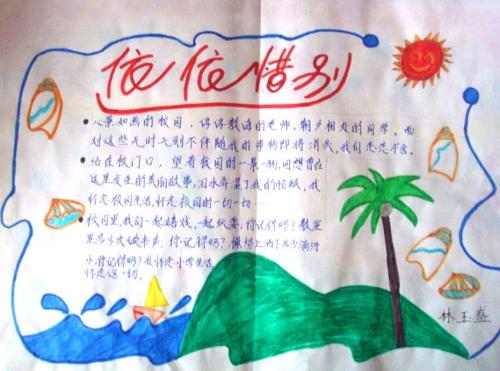 依依惜别
●风景如画的校园,谆谆教诲的老师,朝夕相处的同学。面
对这些无时无刻不伴随我的事物即将消失,我们恋恋不舍。
●站在校门口,望着校园的一景一物,回想曾在
这里发生的美丽故事,泪水弄湿了我的脸颊,我
怀恋校园生活,怀恋校园的一切一切……
●校园里,我们一起嬉戏,一起玩耍,你记得吗?教室
里多少次读书声,你记得吗?操场上洒下多少滴汗
水,你记得吗?我怀恋小学生活,
怀恋这一切。
林玉盛